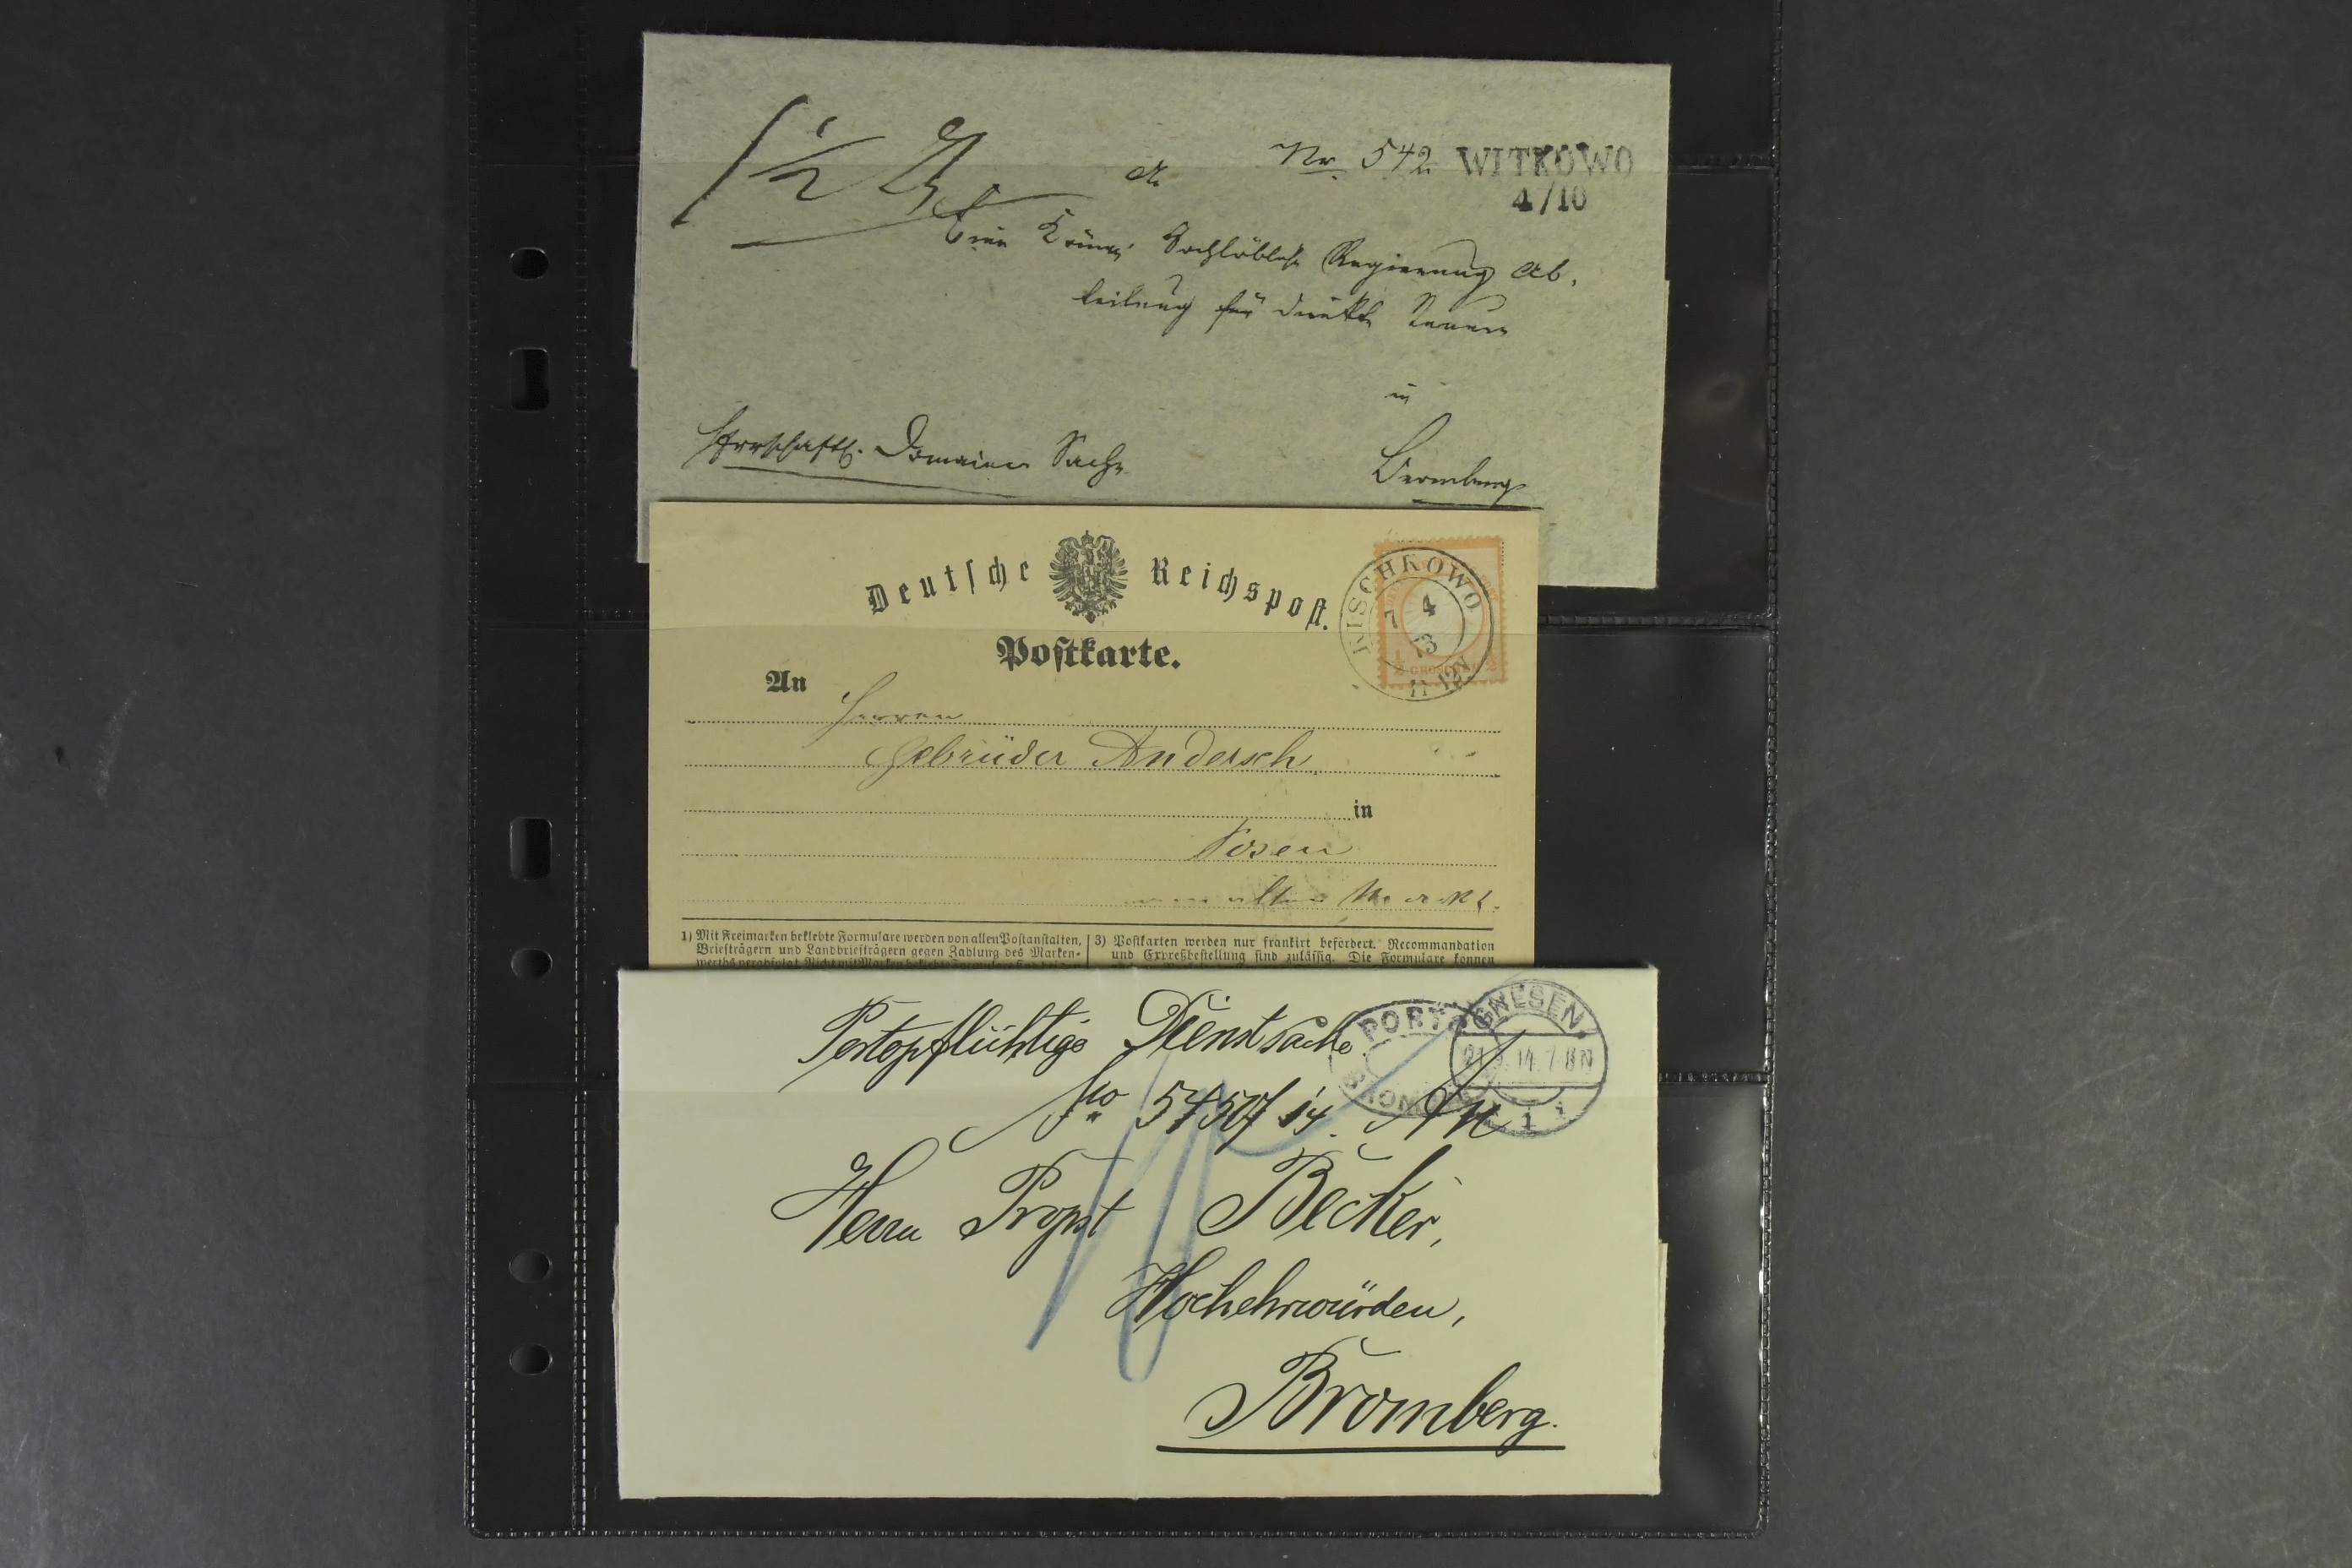 Nr. 542
WITKOWO
4/10
Regierung Ab.
in
Herrschaftl. Domainen Sache
Bromberg
Deutsche Reichspost.
Postkarte.
KISCHKOWO
7 4
73
11-12N
GROSCHEN
An
Herren
Gebrüder Andersch
in
Posen
alten Markt.
1) Mit Freimarken beklebte Formulare werden von allen Postanstalten,
Briefträgern und Landbriefträgern gegen Zahlung des Marken-
3) Postkarten werden nur frankirt befördert. Recommandation
und Expreßbestellung sind zulässig. Die Formulare können
Portopflichtige Dienstsache
GNESEN
14.7-8N
1
No 5450/14. An
Herrn Propst Becker,
Hochehrwürden,
Bromberg.